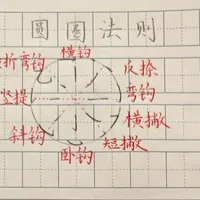 圆圈法则
横钩
反捺
弯钩
横撇
短撇
卧钩
斜钩
竖提
折弯钩